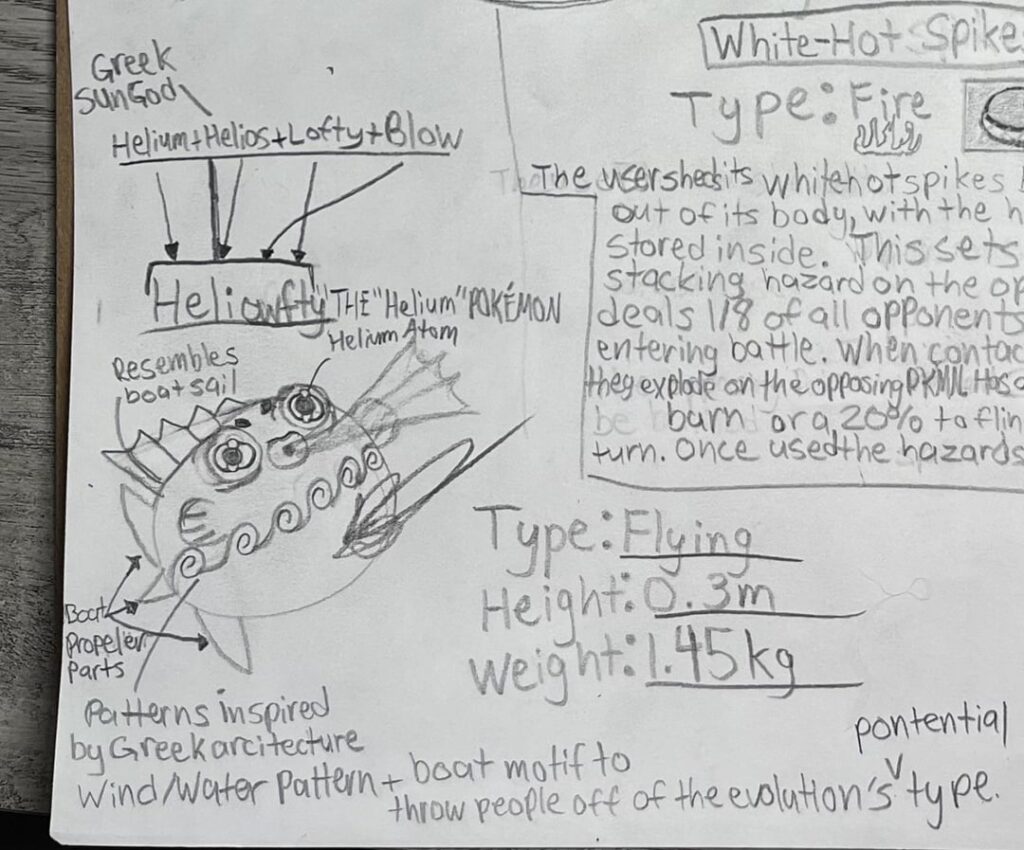 Greek
SunGod
Helium+Helios+Lofty+Blow
Heliowfty THE "Helium" POKÉMON
Helium Atom
Resembles
boat sail
Boat
Propeler
Parts
Patterns inspired
by Greek arcitecture
Wind/Water Pattern + boat motif to
throw people off of the evolution's pontential type.
White-Hot Spike
Type: Fire
The user sheds its white hot spikes
out of its body, with the h
stored inside. This sets
stacking hazard on the op
deals 1/8 of all opponents
entering battle. When contac
they explode on the opposing PKMN. Has a
be burn or a 20% to flin
turn. Once used the hazards
Type: Flying
Height: 0.3m
Weight: 1.45kg